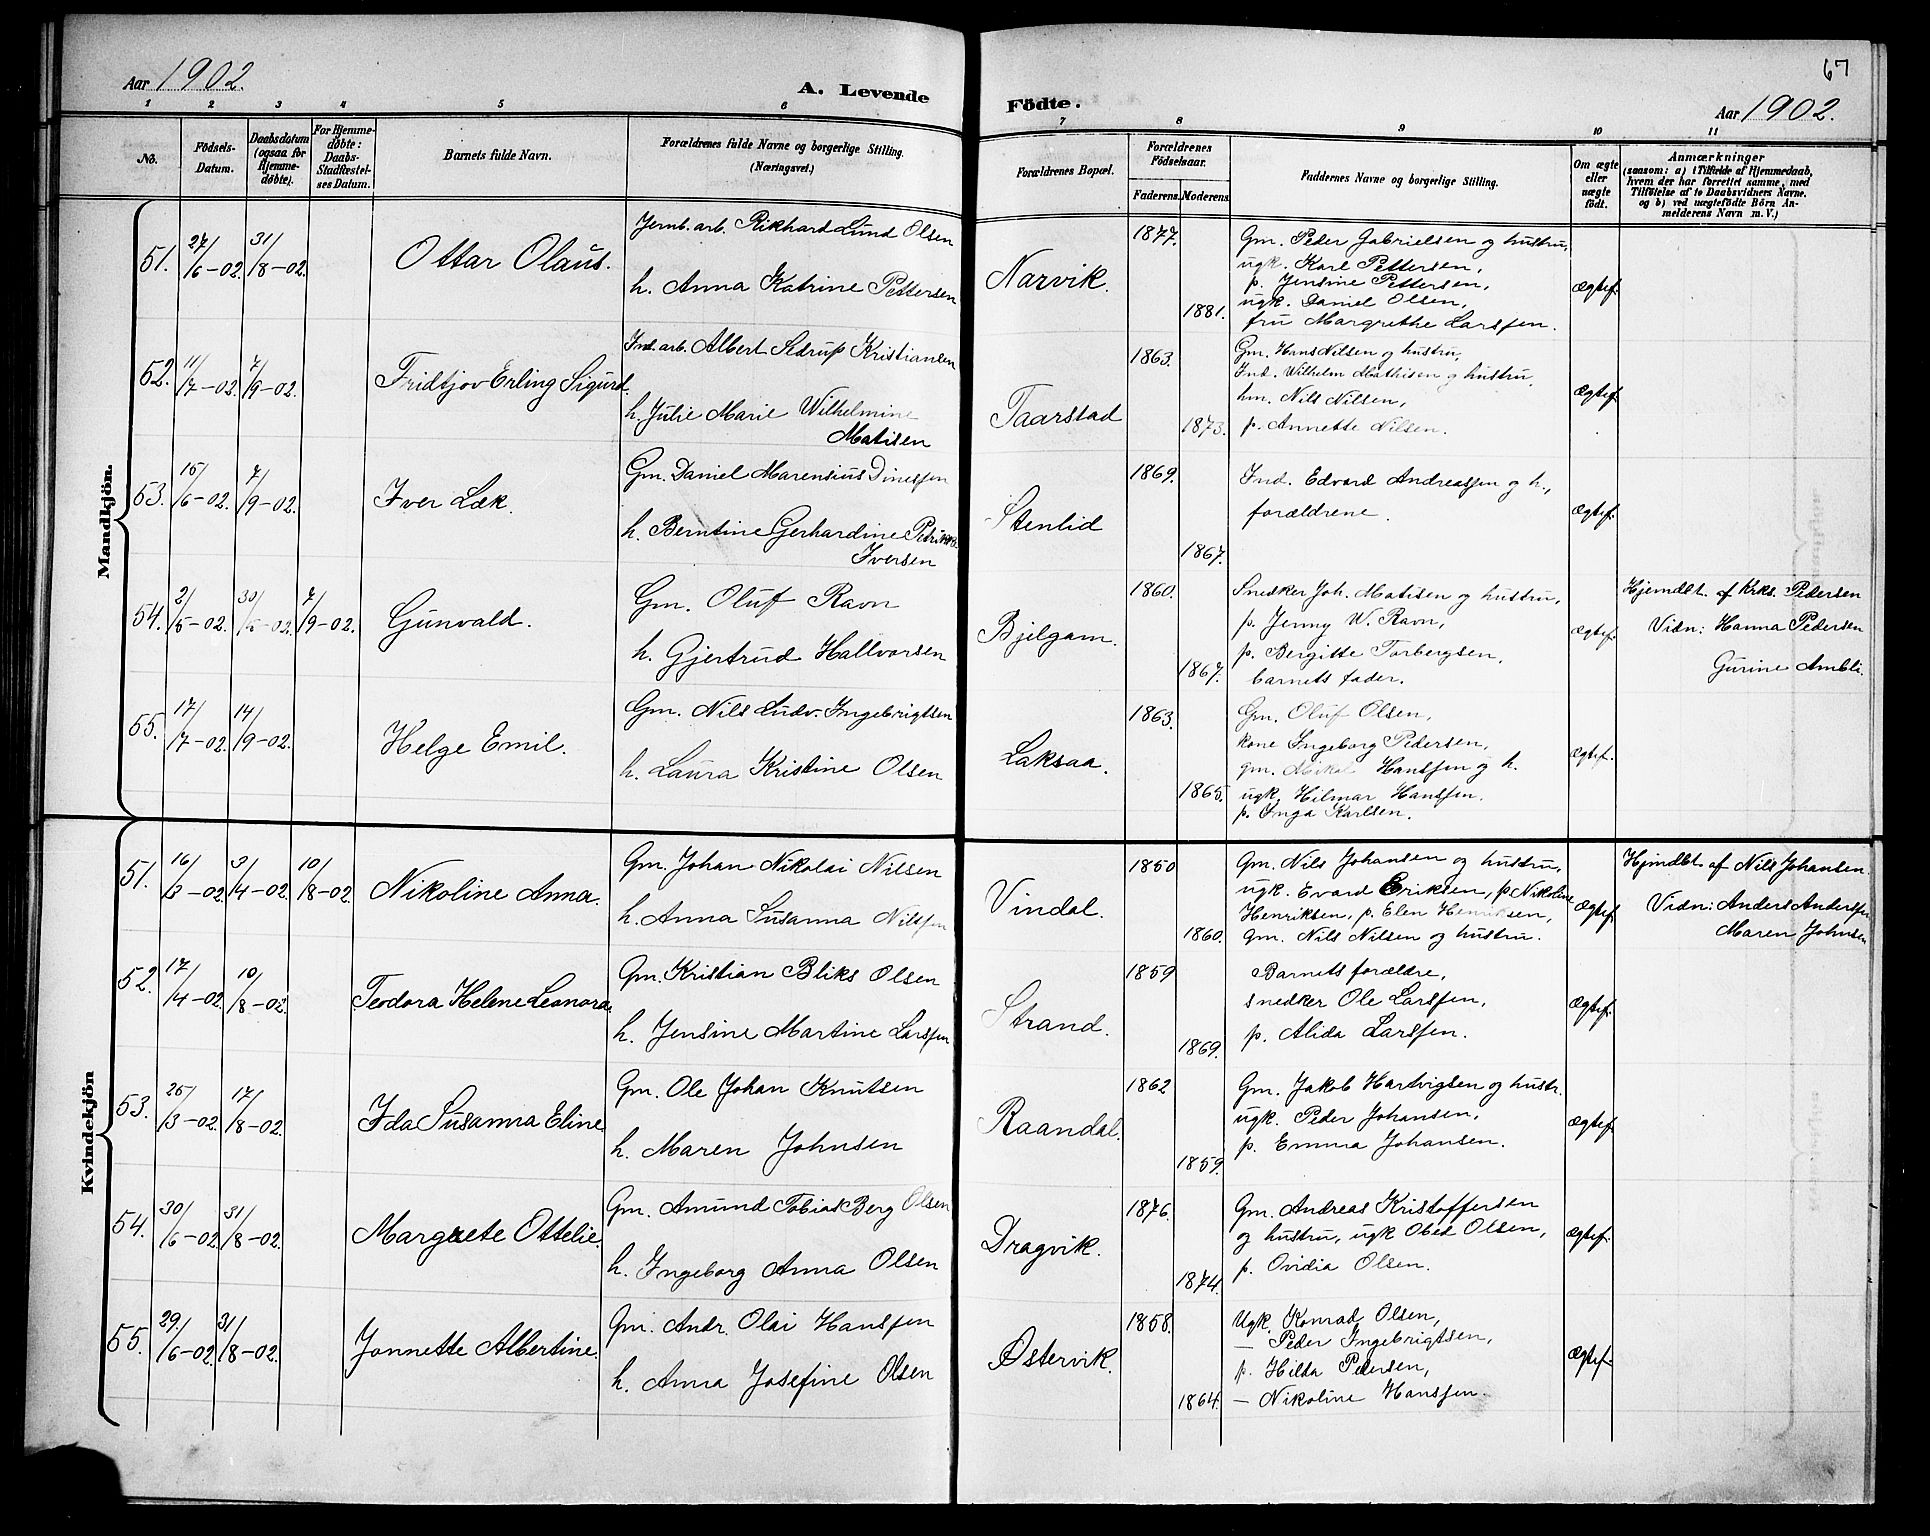 Aar 1902.
A. Levende
Födte.
67
Aar 1902.
1 2 3 4 5 6 7 8 9 10 11
No.
Födsels-
Datum.
Daabsdatum
(ogsaa for
Hjemme-
døbte).
For Hjemme-
døbte:
Daabs-
Stadfæstel-
ses Datum.
Barnets fulde Navn.
Forældrenes fulde Navne og borgerlige Stilling.
(Næringsvei.)
Forældrenes Bopæl.
Forældrenes
Fødselsaar.
Faderens. Moderens.
Faddernes Navne og borgerlige Stilling.
Om ægte
eller
uægte
født.
Anmærkninger
(saasom: a) i Tilfælde af Hjemmedaab,
hvem der har forrettet samme, med
Tilföielse af to Daabsvidners Navne.
og b) ved uægtefödte Börn An-
melderens Navn m. V.)
Mandkjön.
51. 27/6-02. 31/8-02. Ottar Olaus.
Jernb. arb. Rikhard Lund Olsen
h. Anna Katrine Pettersen
Narvik.
1877.
1881.
Gm. Peder Gabrielsen og hustru,
ugk. Karl Pettersen,
p. Jensine Pettersen,
ugk. Daniel Olsen,
fru Margrethe Larssen.
Ægtef.
52. 11/7-02. 7/9-02. Fridtjov Erling Sigurd.
Ind. arb. Albert Sedrup Kristiansen
h. Julie Marie Wilhelmine
Matisen
Taarstad
1863.
1873.
Gm. Hans Nilsen og hustru,
Ind. Wilhelm Mathisen og hustru,
hm. Nils Nilsen,
p. Annette Nilsen.
Ægtef.
53. 15/6-02. 7/9-02. Iver Læk.
Gm. Daniel Marensius Dinessen
h. Berntine Gerhardine
Iversen
Stenlid
1869.
1867.
Ind. Edvard Andreassen og h.,
forældrene.
Ægtef.
54. 2/5-02. 30/5-02. 7/9-02. Gunvald.
Gm. Oluf Ravn
h. Gjertrud Hallvorsen
Bjelgam.
1860.
1867.
Snedker Joh. Matisen og hustru,
p. Jenny W. Ravn,
p. Bergitte Torbergsen,
barnets fader.
Ægtef.
Hjemdbt. af Krks. Pedersen
Vidn: Hanna Pedersen
Gurine Ambli.
55. 17/7-02. 14/9-02. Helge Emil.
Gm. Nils Ludv. Ingebrigtsen
h. Laura Kristine Olsen
Laksaa.
1863.
1865.
Gm. Oluf Olsen,
kone Ingeborg Pedersen,
gm. Mikal Hanssen og h.
ugk. Hilmar Hanssen.
p. Inga Karlsen.
Ægtef.
Kvindekjön
51. 16/3-02. 3/4-02. 10/8-02. Nikoline Anna.
Gm. Johan Nikolai Nilsen
h. Anna Susanna Nilssen
Vindal.
1850
1860.
Gm. Nils Johansen og hustru,
ugk. Evard Eriksen, p. Nikoline
Henriksen, p. Elen Henriksen,
gm. Nils Nilsen og hustru.
Ægtef.
Hjmdbt. af Nils Johansen
Vidn: Anders Anderssen
Maren Johnsen
52. 17/4-02. 10/8-02. Teodora Helene Leonora.
Gm. Kristian Bliks Olsen
h. Jensine Martine Larssen
Strand.
1859
1869.
Barnets forældre,
snedker Ole Larssen,
p. Alida Larssen.
Ægtef.
53. 25/3-02. 17/8-02. Ida Susanna Eline
Gm. Ole Johan Knutsen
h. Maren Johnsen
Raandal.
1862
1859.
Gm. Jakob Hartvigsen og hustr.
ugk. Peder Johansen,
p. Emma Johansen.
Ægtef.
54. 30/6-02. 31/8-02. Margrete Ottelie.
Gm. Amund Tobias Berg Olsen
h. Ingeborg Anna Olsen
Dragvik.
1876.
1874.
Gm. Andreas Kristoffersen
og hustru, ugk Obed Olsen,
p. Ovidia Olsen.
Ægtef.
55. 29/6-02. 31/8-02. Jonnette Albertine.
Gm. Andr. Olai Hanssen
h. Anna Josefine Olsen
Østervik.
1858.
1864.
Ugk. Konrad Olsen,
— Peder Ingebrigtsen,
p. Hilda Pedersen,
— Nikoline Hanssen.
Ægtef.